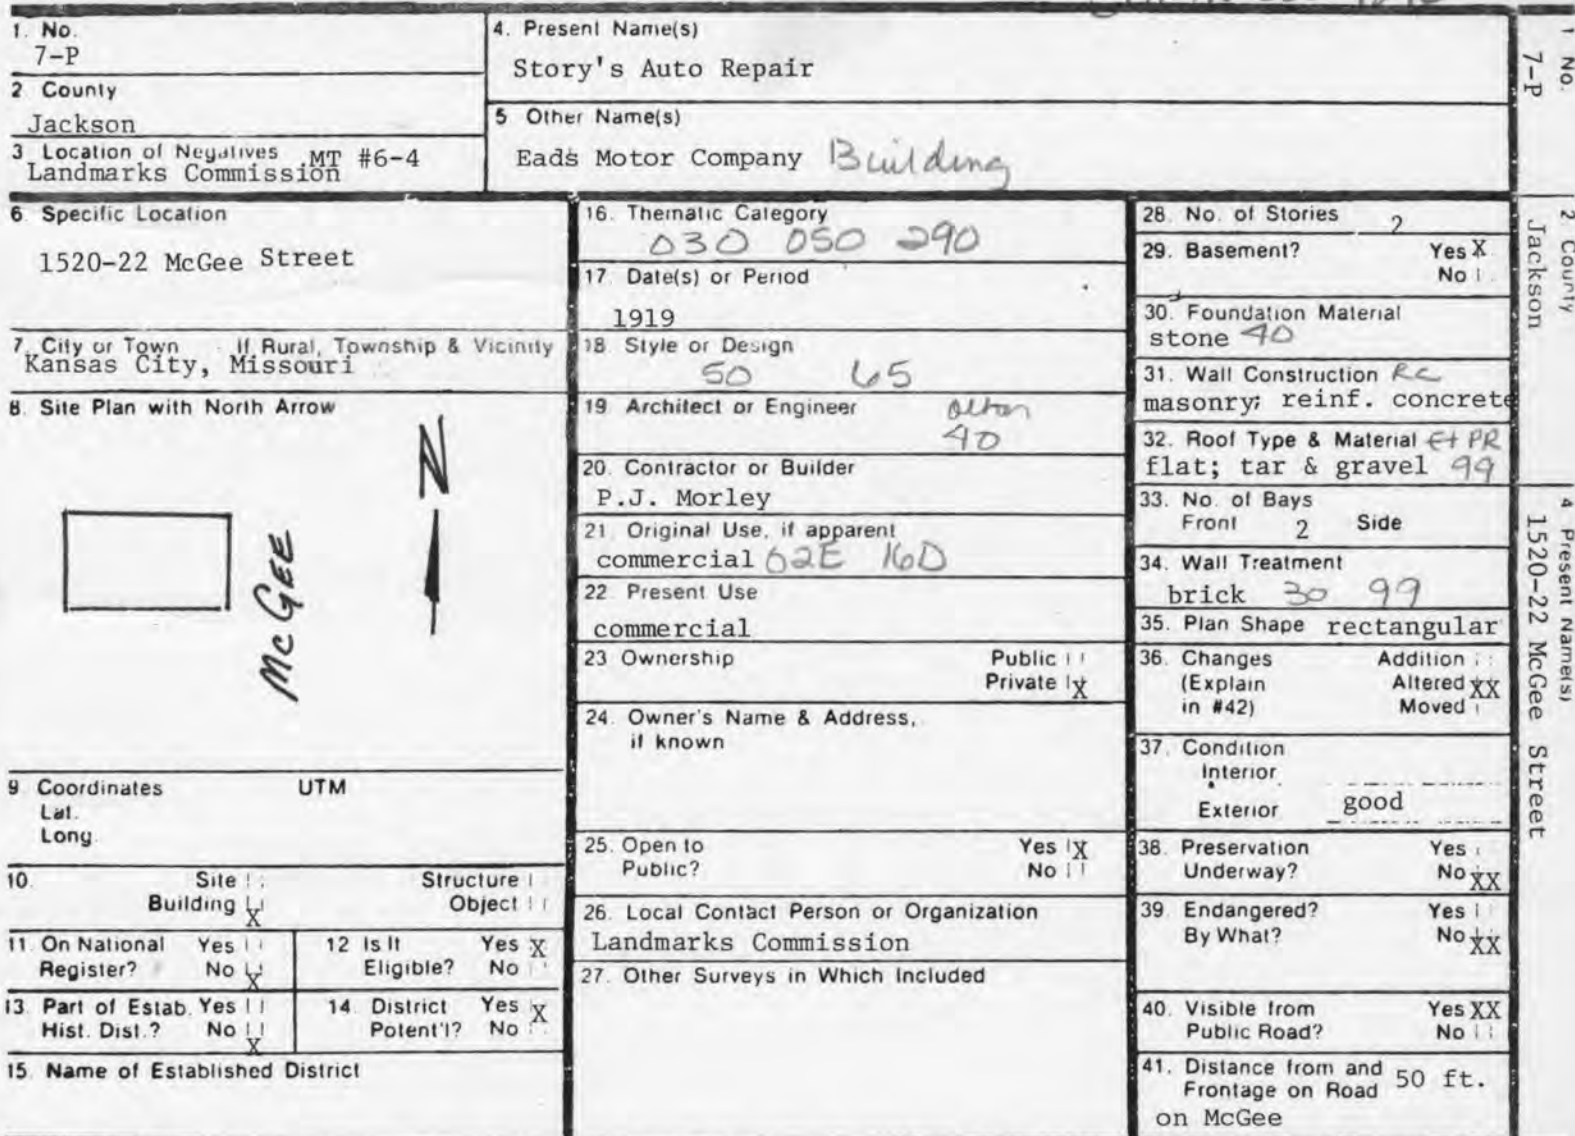 1. No.
7-P
2 County
Jackson
3 Location of Negatives MT #6-4
Landmarks Commission
4. Present Name(s)
Story's Auto Repair
5 Other Name(s)
Eads Motor Company Building
6 Specific Location
1520-22 McGee Street
7. City or Town If Rural, Township & Vicinity
Kansas City, Missouri
8. Site Plan with North Arrow
N
McGEE
9 Coordinates UTM
Lat.
Long.
10. Site Structure
Building X Object
11. On National Yes
Register? No X
12 Is It Yes X
Eligible? No
13 Part of Estab. Yes
Hist. Dist.? No X
14. District Yes X
Potent'l? No
15. Name of Established District
16. Thematic Category
030 050 290
17. Date(s) or Period
1919
18 Style or Design
50 65
19 Architect or Engineer
40
20. Contractor or Builder
P.J. Morley
21. Original Use, if apparent
commercial 02E 16D
22. Present Use
commercial
23 Ownership Public
Private X
24. Owner's Name & Address,
if known
25. Open to Yes X
Public? No
26. Local Contact Person or Organization
Landmarks Commission
27. Other Surveys in Which Included
28. No. of Stories 2
29. Basement? Yes X
No
30. Foundation Material
stone 40
31. Wall Construction RC
masonry; reinf. concrete
32. Roof Type & Material PR
flat; tar & gravel 99
33. No. of Bays
Front 2 Side
34. Wall Treatment
brick 30 99
35. Plan Shape rectangular
36. Changes Addition
(Explain Altered XX
in #42) Moved
37. Condition
Interior
Exterior good
38. Preservation Yes
Underway? No XX
39. Endangered? Yes
By What? No XX
40. Visible from Yes XX
Public Road? No
41. Distance from and
Frontage on Road 50 ft.
on McGee
1 No.
7-P
2 County
Jackson
4 Present Name(s)
1520-22 McGee Street